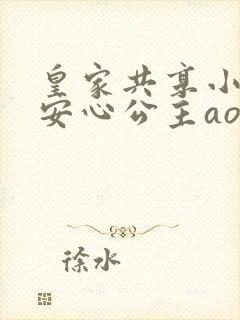 皇家共享小
安心公主ao
徐水